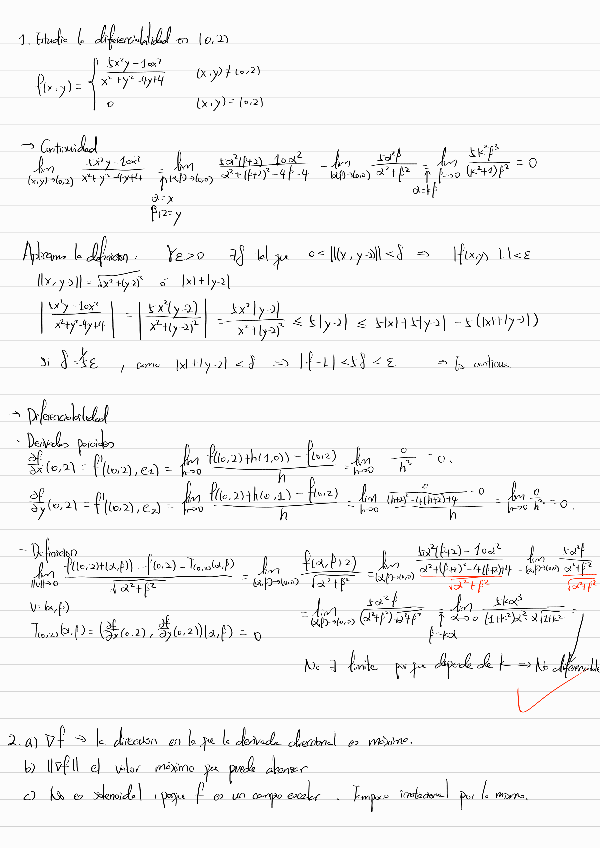 1. Estudia la diferenciabilidad en (0,2)
f(x,y) = { (5x²y - 10x²)/(x² + y² - 4y + 4) (x,y) ≠ (0,2)
0 (x,y) = (0,2)
→ Continuidad
lim (x,y)→(0,2) (5x²y - 10x²)/(x² + y² - 4y + 4) = lim (α,β)→(0,0) (5α²(β+2) - 10α²)/(α² + (β+2)² - 4β - 4) = lim (α,β)→(0,0) 5α²β/(α² + β²) = lim β→0 5k²β³/((k²+1)β²) = 0
α = x α = kβ
β+2 = y
Aplicamos la definicion. ∀ε>0 ∃δ tal que 0 < ||(x, y-2)|| < δ ⇒ |f(x,y) - L| < ε
||(x, y-2)|| = √(x² + (y-2)²) ó |x| + |y-2|
|(5x²y - 10x²)/(x² + y² - 4y + 4)| = |5x²(y-2)/(x² + (y-2)²)| = 5x²|y-2|/(x² + (y-2)²) ≤ 5|y-2| ≤ 5|x| + 5|y-2| = 5(|x| + |y-2|)
Si δ = ε/5, como |x| + |y-2| < δ ⇒ |f - L| < 5δ < ε ⇒ Es continua
→ Diferenciabilidad
· Derivadas parciales
∂f/∂x (0,2) = f'((0,2), e₁) = lim h→0 (f((0,2) + h(1,0)) - f(0,2))/h = lim h→0 0/h² = 0.
∂f/∂y (0,2) = f'((0,2), e₂) = lim h→0 (f((0,2) + h(0,1)) - f(0,2))/h = lim h→0 (0/((h+2)² - 4(h+2) + 4) - 0)/h = lim h→0 0/h² = 0.
- Definicion
lim ||v||→0 (f((0,2) + (α,β)) - f(0,2) - T(0,2)(α,β))/√(α² + β²) = lim (α,β)→(0,0) f(α, β+2)/√(α² + β²) = lim (α,β)→(0,0) ((5α²(β+2) - 10α²)/(α² + (β+2)² - 4(β+2) + 4))/√(α² + β²) = lim (α,β)→(0,0) (5α²β/(α² + β²))/√(α² + β²)
v = (α,β)
= lim (α,β)→(0,0) 5α²β/((α² + β²)√(α² + β²)) = lim α→0 5kα³/((1+k²)α² · α√(1+k²)) =
β = kα
T(0,2)(α,β) = (∂f/∂x (0,2), ∂f/∂y (0,2))(α,β) = 0
No ∃ limite porque depende de k ⇒ No diferenciable
2. a) ∇f → la direccion en la que la derivada direccional es máxima.
b) ||∇f|| el valor máximo que puede alcanzar
c) No es solenoidal, porque f es un campo escalar. Tampoco irrotacional por lo mismo.